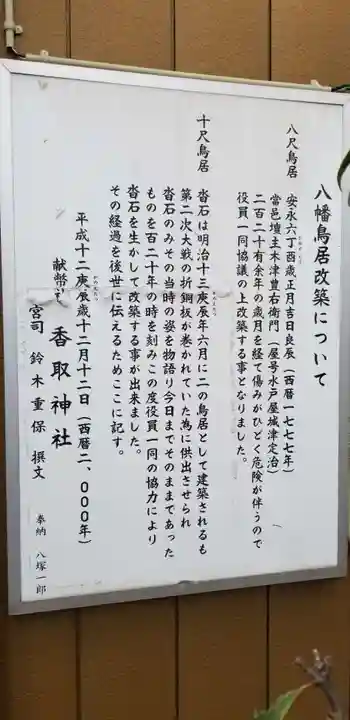 八幡鳥居改築について
八尺鳥居 安永六丁酉歳正月吉日良辰（西暦一七七七年）
當邑壇主木津豊右衛門（屋号水戸屋城津定治）
二百二十有余年の歳月を経て傷みがひどく危険が伴うので
役員一同協議の上改築する事となりました。
十尺鳥居 沓石は明治十三庚辰年六月に二の鳥居として建築されるも
第二次大戦の折銅板が巻かれていた為に供出させられ
沓石のみその当時の姿を物語り今日までそのままであった
ものを百二十年の時を刻みこの度役員一同の協力により
沓石を生かして改築する事が出来ました。
その経過を後世に伝えるためここに記す。
平成十二庚辰歳十二月十二日（西暦二、〇〇〇年）
献幣使 香取神社
宮司 鈴木重保 撰文
奉納 八塚一郎